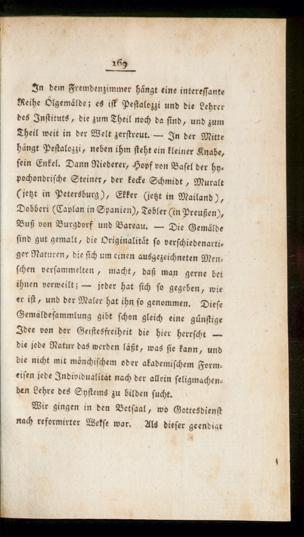 169
In dem Fremdenzimmer hängt eine interessante
Reihe Ölgemälde; es ist Pestalozzi und die Lehrer
des Instituts, die zum Theil noch da sind, und zum
Theil weit in der Welt zerstreut. — In der Mitte
hängt Pestalozzi, neben ihm steht ein kleiner Knabe,
sein Enkel. Dann Niederer, Hopf von Basel der hy-
pochondrische Steiner, der kecke Schmidt, Muralt
(jetzt in Petersburg), Ekker (jetzt in Mailand),
Dobberi (Caplan in Spanien), Tobler (in Preußen),
Buß von Burgdorf und Bareau. — Die Gemälde
sind gut gemalt, die Originalität so verschiedenarti-
ger Naturen, die sich um einen ausgezeichneten Men-
schen versammelten, macht, daß man gerne bei
ihnen verweilt; — jeder hat sich so gegeben, wie
er ist, und der Maler hat ihn so genommen. Diese
Gemäldesammlung gibt schon gleich eine günstige
Idee von der Geistesfreiheit die hier herrscht —
die jede Natur das werden läßt, was sie kann, und
die nicht mit mönchischem oder akademischem Form-
eisen jede Individualität nach der allein seligmachen-
den Lehre des Systems zu bilden sucht.
Wir gingen in den Betsaal, wo Gottesdienst
nach reformirter Weise war. Als dieser geendigt